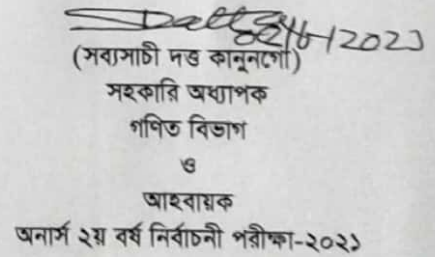 (সব্যসাচী দত্ত কানুনগো)
সহকারি অধ্যাপক
গণিত বিভাগ
ও
আহবায়ক
অনার্স ২য় বর্ষ নির্বাচনী পরীক্ষা-২০২১